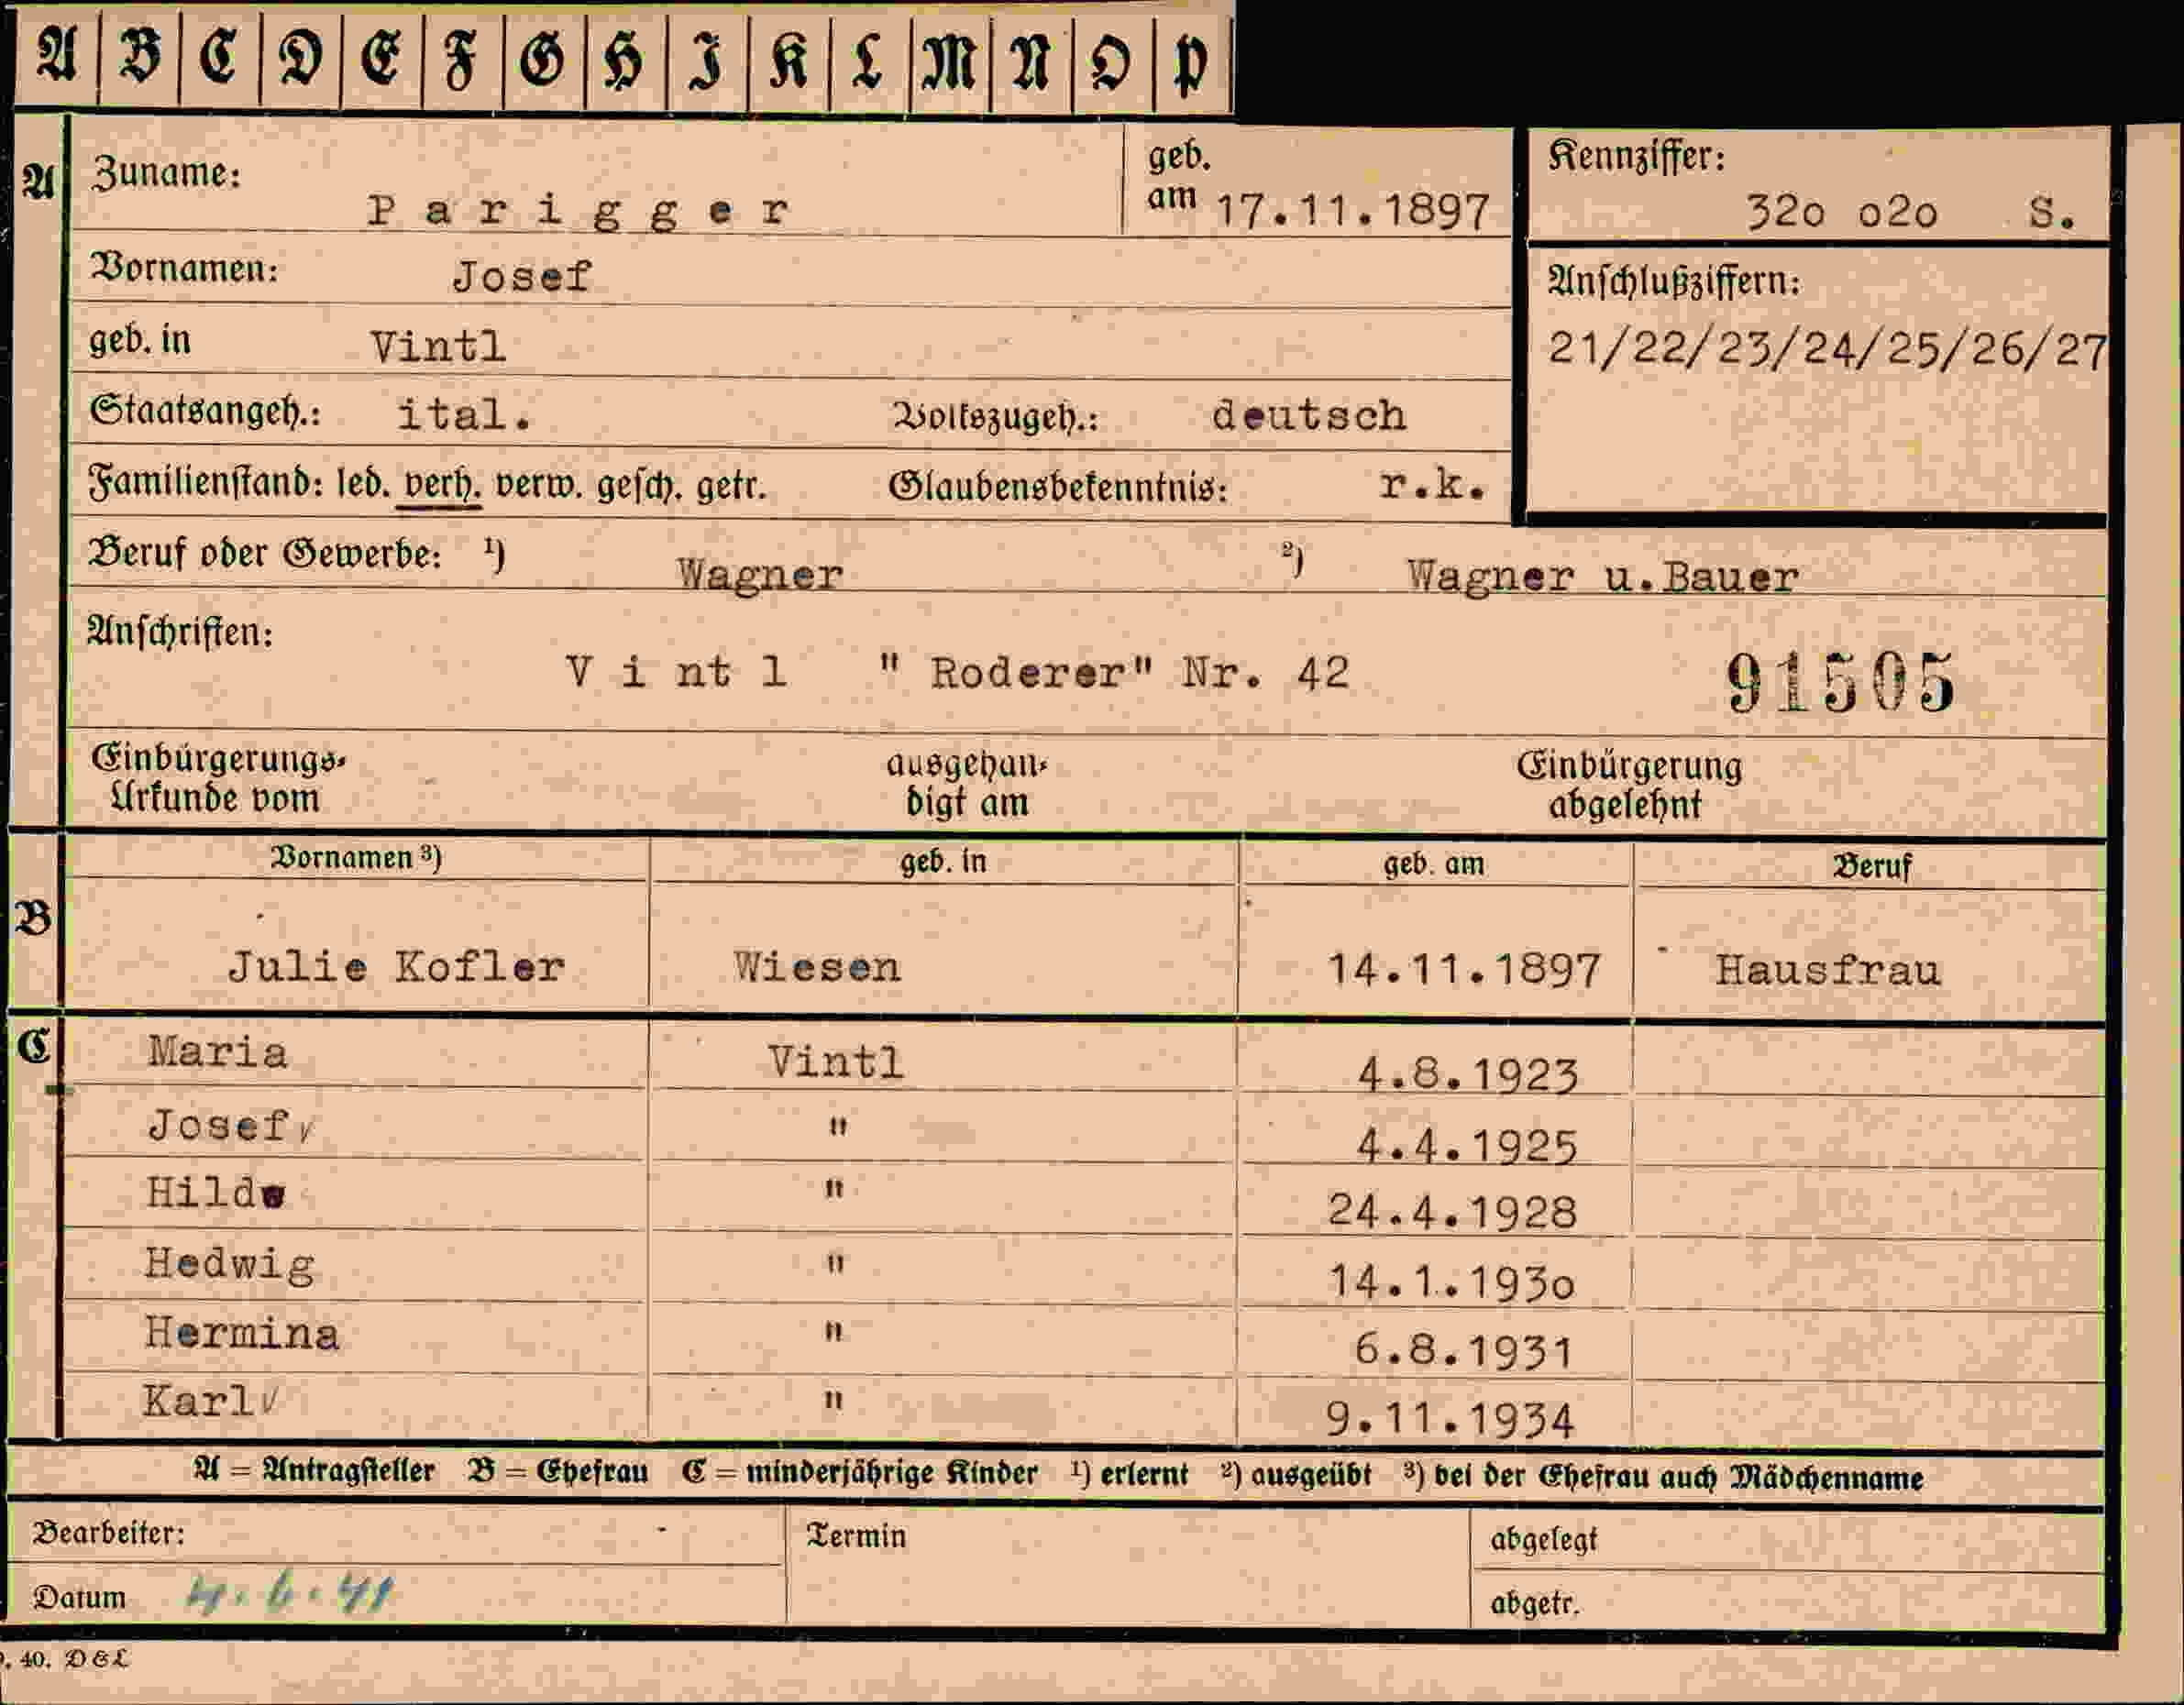 A B C D E F G H I K L M N O P
A Zuname: Parigger geb. am 17.11.1897 Kennziffer: 32o o2o S.
Vornamen: Josef
Anschlußziffern:
geb. in Vintl 21/22/23/24/25/26/27
Staatsangeh.: ital. Volkszugeh.: deutsch
Familienstand: led. verh. verw. gesch. getr. Glaubensbekenntnis: r.k.
Beruf oder Gewerbe: ¹) Wagner ²) Wagner u.Bauer
Anschriften:
Vintl "Roderer" Nr. 42 91505
Einbürgerungs- ausgehän- Einbürgerung
Urkunde vom digt am abgelehnt
Vornamen ³) geb. in geb. am Beruf
B Julie Kofler Wiesen 14.11.1897 Hausfrau
C Maria Vintl 4.8.1923
Josef " 4.4.1925
Hilde " 24.4.1928
Hedwig " 14.1.193o
Hermina " 6.8.1931
Karl " 9.11.1934
A = Antragsteller B = Ehefrau C = minderjährige Kinder ¹) erlernt ²) ausgeübt ³) bei der Ehefrau auch Mädchenname
Bearbeiter: Termin abgelegt
Datum 4.6.41 abgetr.
40. D&L